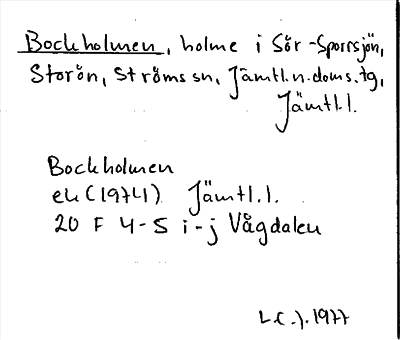 Bockholmen, holme i Sör-Sporrsjön,
Storön, Ströms sn, Jämtl.n.doms.tg,
Jämtl.l.
Bockholmen
ek (1974) Jämtl.l.
20 F 4-5 i-j Vågdalen
L.C.J. 1977